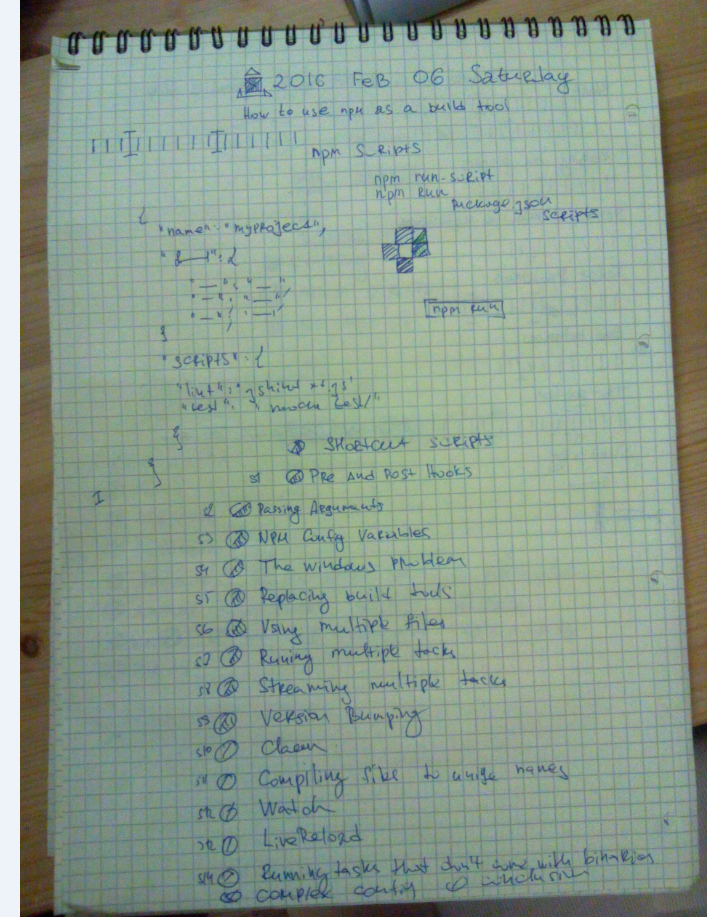 2016 FeB 06 Saturday
How to use npm as a build tool
npm ScRipts
npm run-script
npm Run
package json
scripts
{
"name": "myproject",
"
": {
"__": "__"
"__": "__"
"__": "__"
}
"scripts": {
"lint": "jshint **.js"
"test": "mocha test/"
}
}
npm run
SHortcut scripts
s1 Pre And Post Hooks
2 Passing Arguments
s3 NPM Config Variables
s4 The windows problem
s5 Replacing build tools
s6 Using multiple files
s7 Runing multiple tacks
s8 Streaming multiple tacks
s9 Version Bumping
s10 Claen
s11 Compiling files to unige names
s12 Watch
LiveReload
s14 Running tasks that don't come with binaries
complex config conclusion